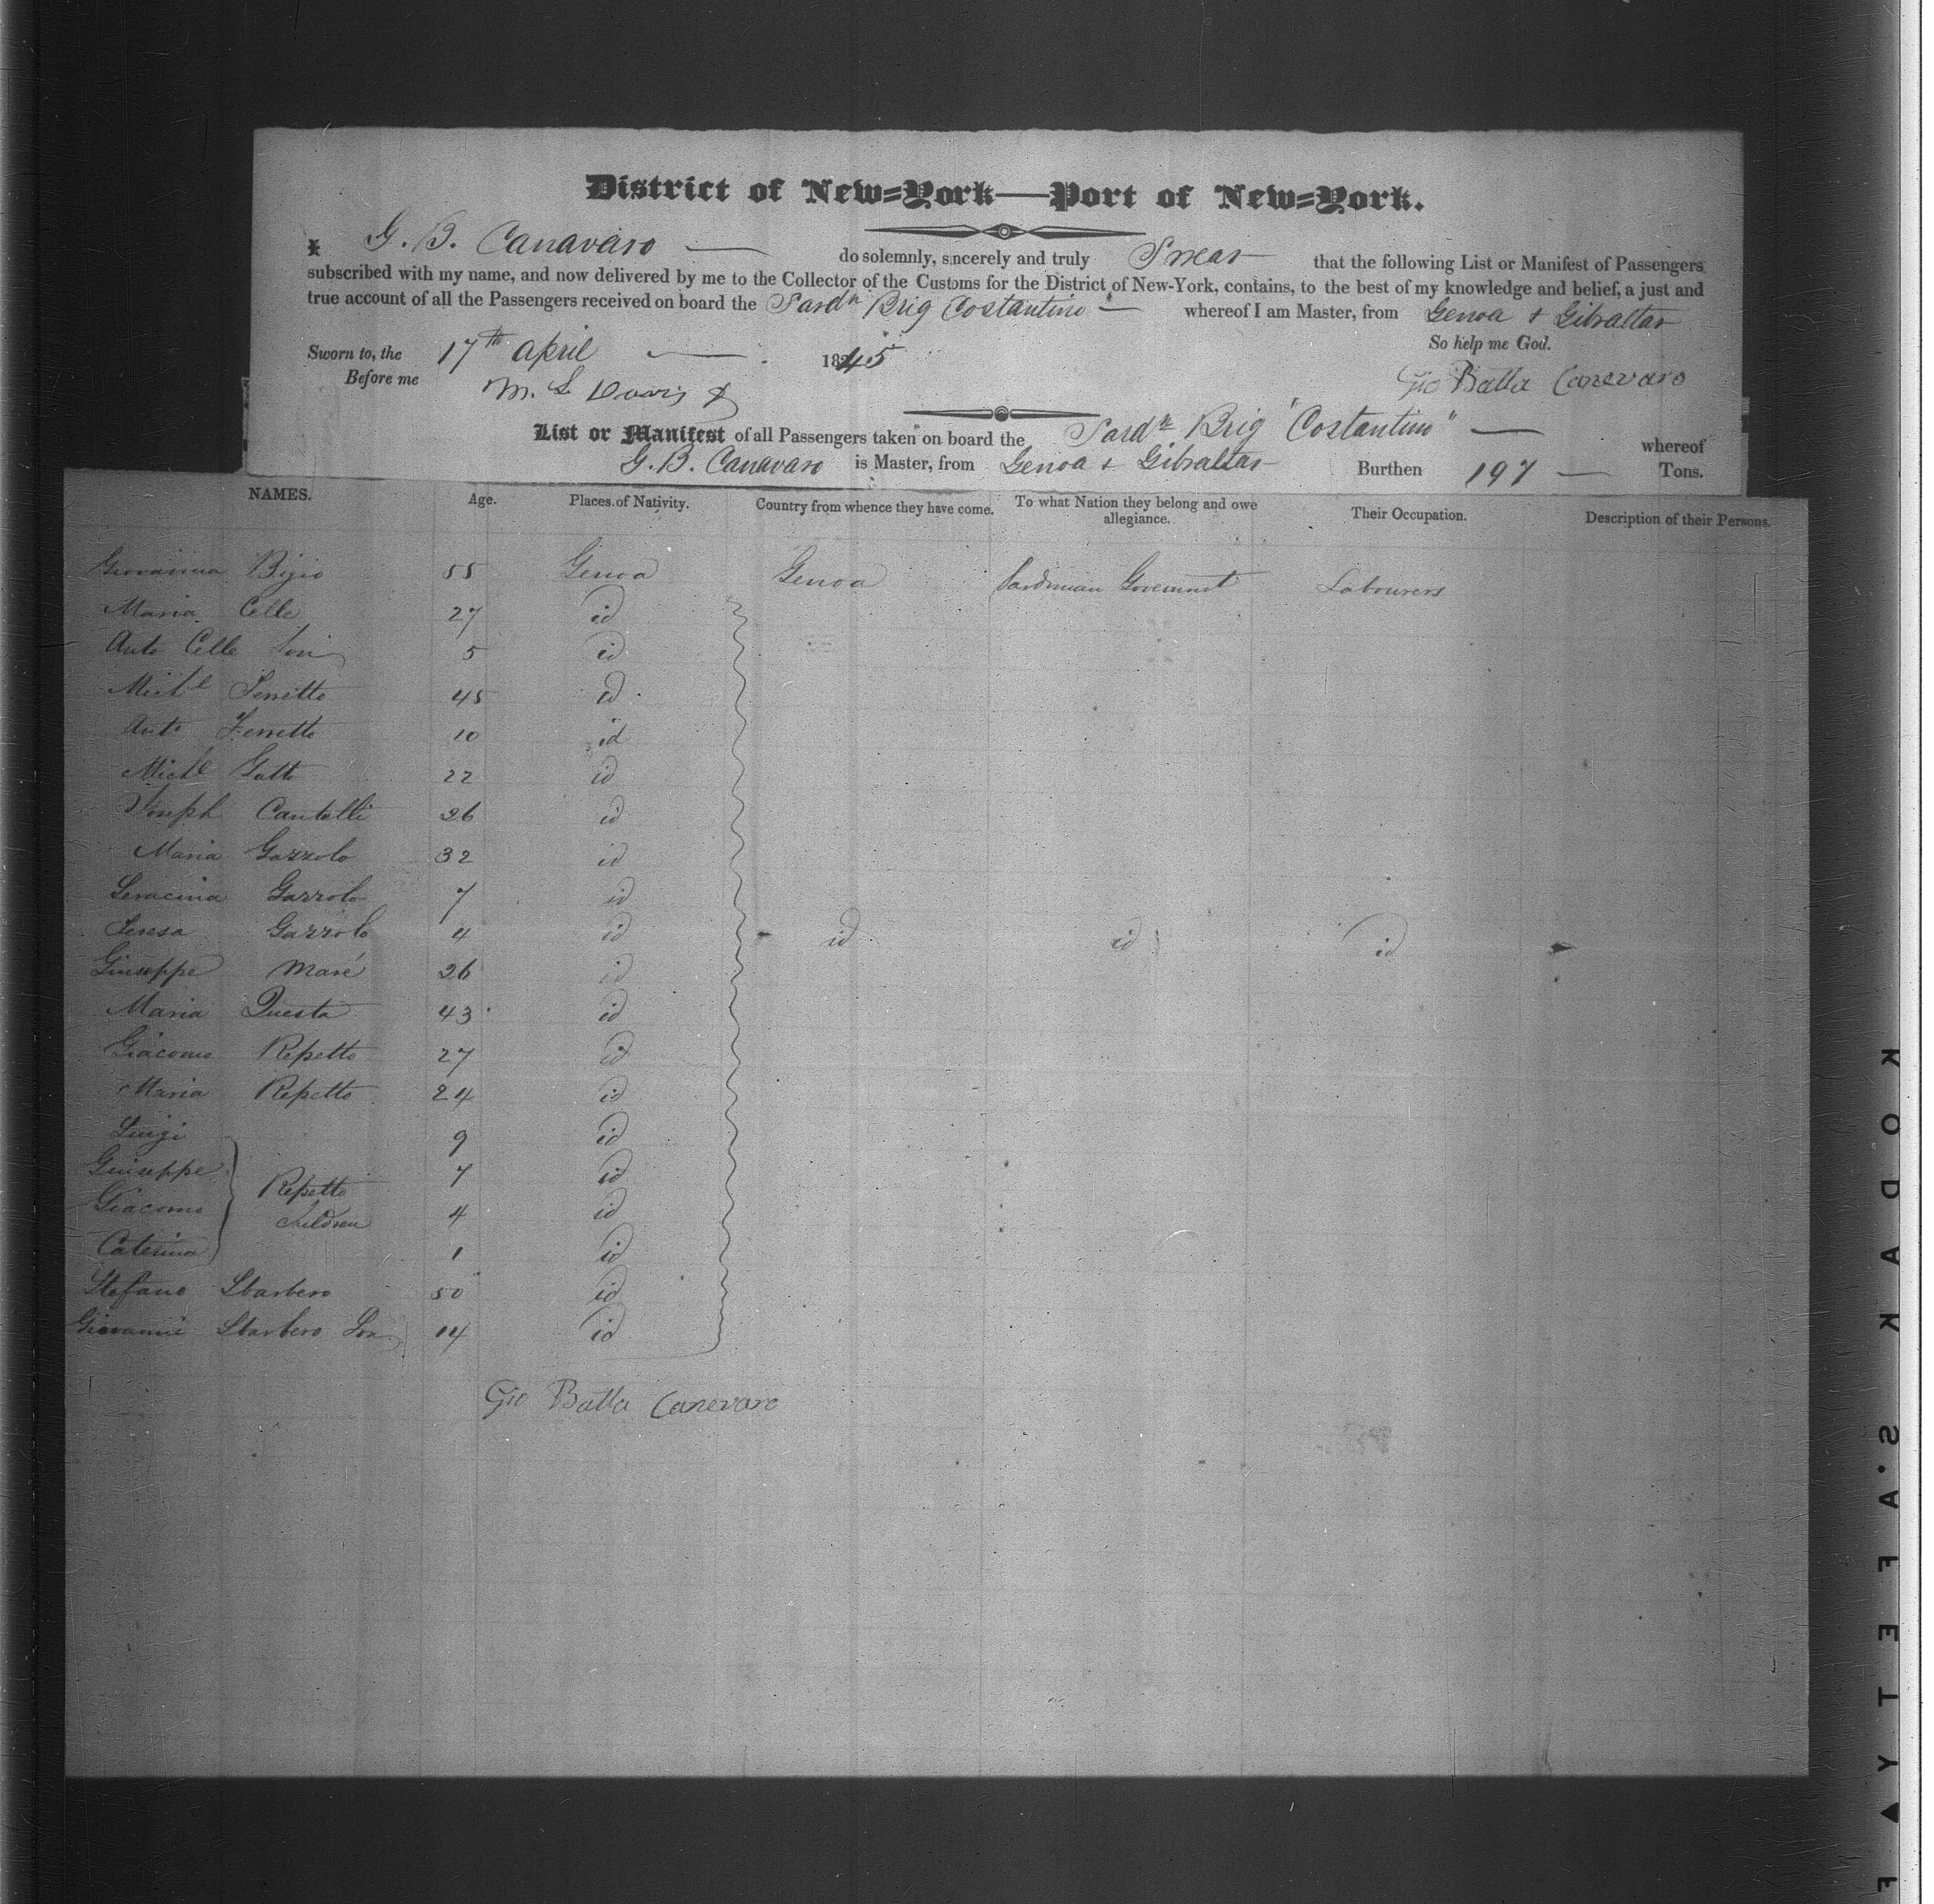 District of New=York—Port of New=York.
I, G. B. Canavaro — do solemnly, sincerely and truly Swear that the following List or Manifest of Passengers
subscribed with my name, and now delivered by me to the Collector of the Customs for the District of New-York, contains, to the best of my knowledge and belief, a just and
true account of all the Passengers received on board the Sardn Brig Costantino — whereof I am Master, from Genoa & Gibraltar
So help me God.
Sworn to, the 17th april — 1845
Before me M. L Davis
Gio Batta Canevaro
List or Manifest of all Passengers taken on board the Sardn Brig "Costantino" — whereof
G. B. Canavaro is Master, from Genoa & Gibraltar Burthen 197 — Tons.
NAMES. Age. Places of Nativity. Country from whence they have come. To what Nation they belong and owe allegiance. Their Occupation. Description of their Persons.
Giovanna Bigio 55 Genoa Genoa Sardinian Government Labourers
Maria Celle 27 id
Anto Celle Son 5 id
Michl Ferretto 45 id
Anto Ferretto 10 id
Michl Gatto 22 id
Joseph Cantelli 26 id
Maria Gazzolo 32 id
Gazzolo 7 id
Teresa Gazzolo 4 id id id id
Giuseppe Maré 26 id
Maria Questa 43 id
Giacomo Repetto 27 id
Maria Repetto 24 id
Luigi 9 id
Giuseppe 7 id
Repetto
Giacomo 4 id
Children
Caterina 1 id
Stefano Sbarbero 50 id
Giovanni Sbarbero Son 14 id
Gio Batta Canevaro
KODAK SAFETY